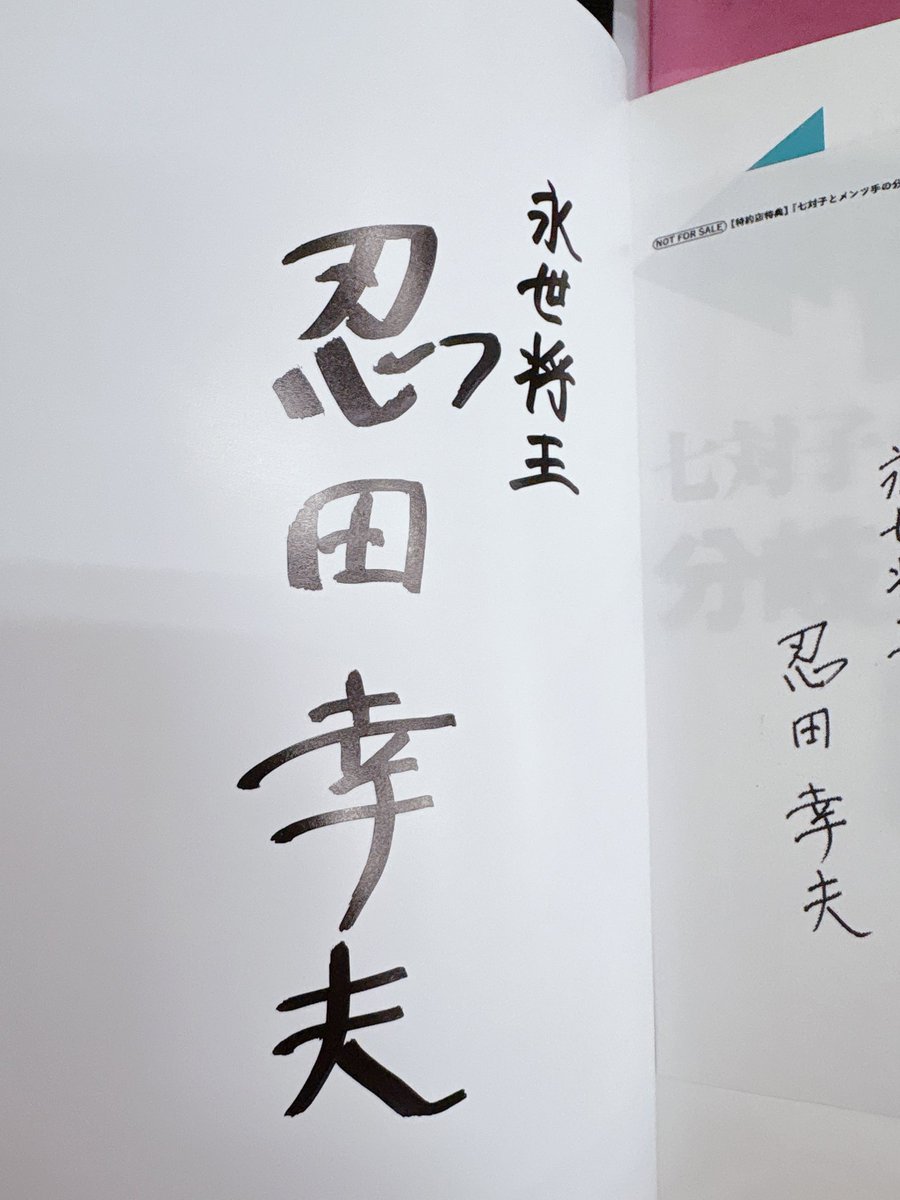 永世将王
忍田幸夫
NOT FOR SALE 【特約店特典】『七対子とメンツ手の分
七対子
分
忍田幸夫